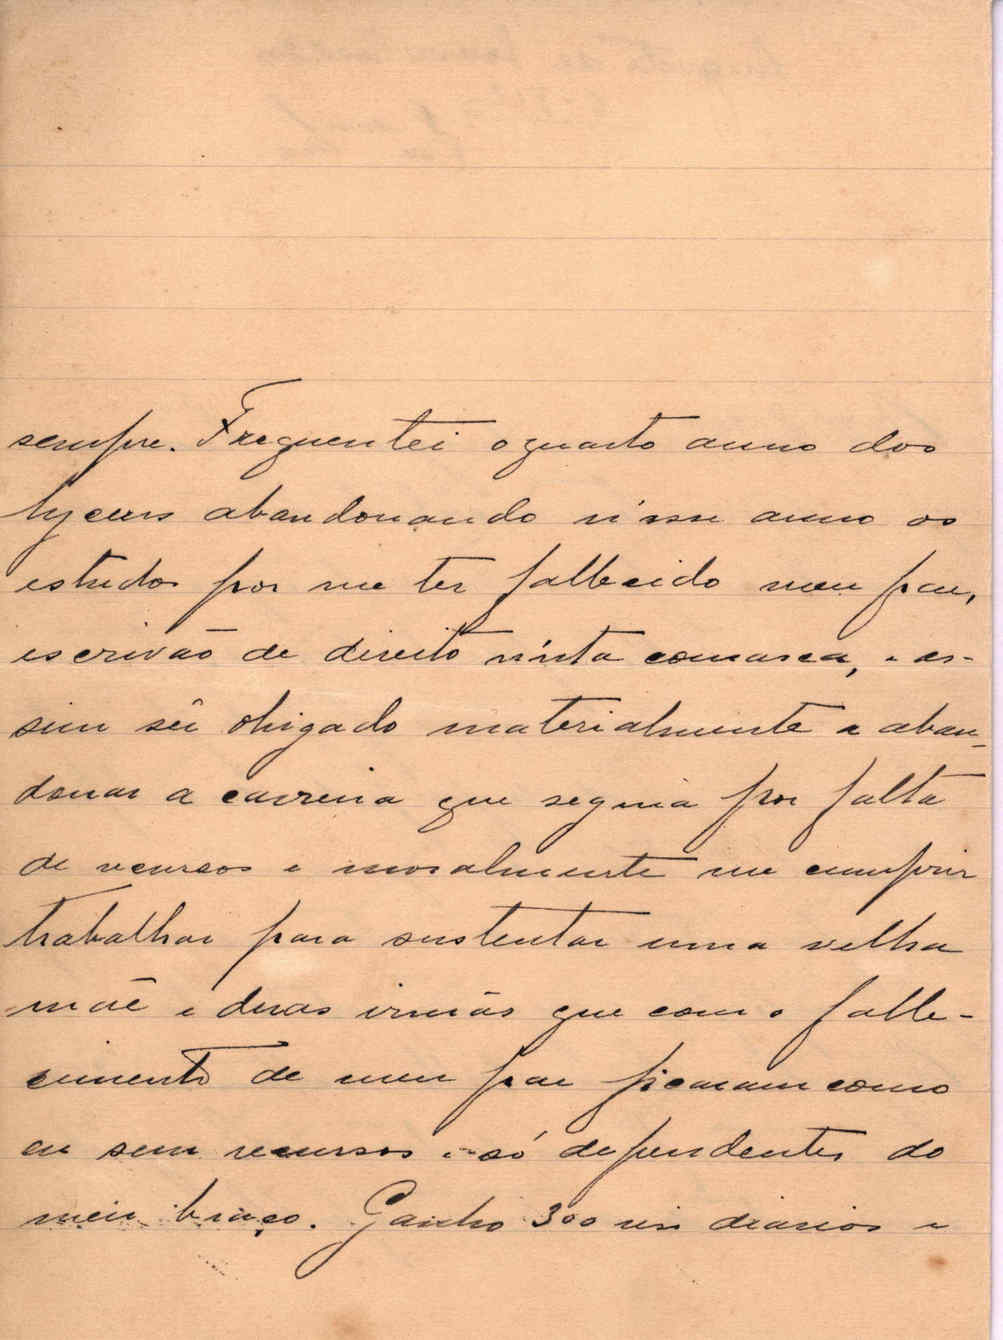 sempre. Frequentei o quarto anno dos
lyceus abandonando n'esse anno os
estudos por me ter fallecido meu pae,
escrivão de direito n'esta comarca, e as-
sim sêr obrigado materialmente a aban-
donar a carreira que seguia por falta
de recursos e moralmente me cumprir
trabalhar para sustentar uma velha
mãe e duas irmãs que com o falle-
cimento de meu pae ficaram como
eu sem recursos e só dependentes do
meu braço. Ganho 300 reis diarios e